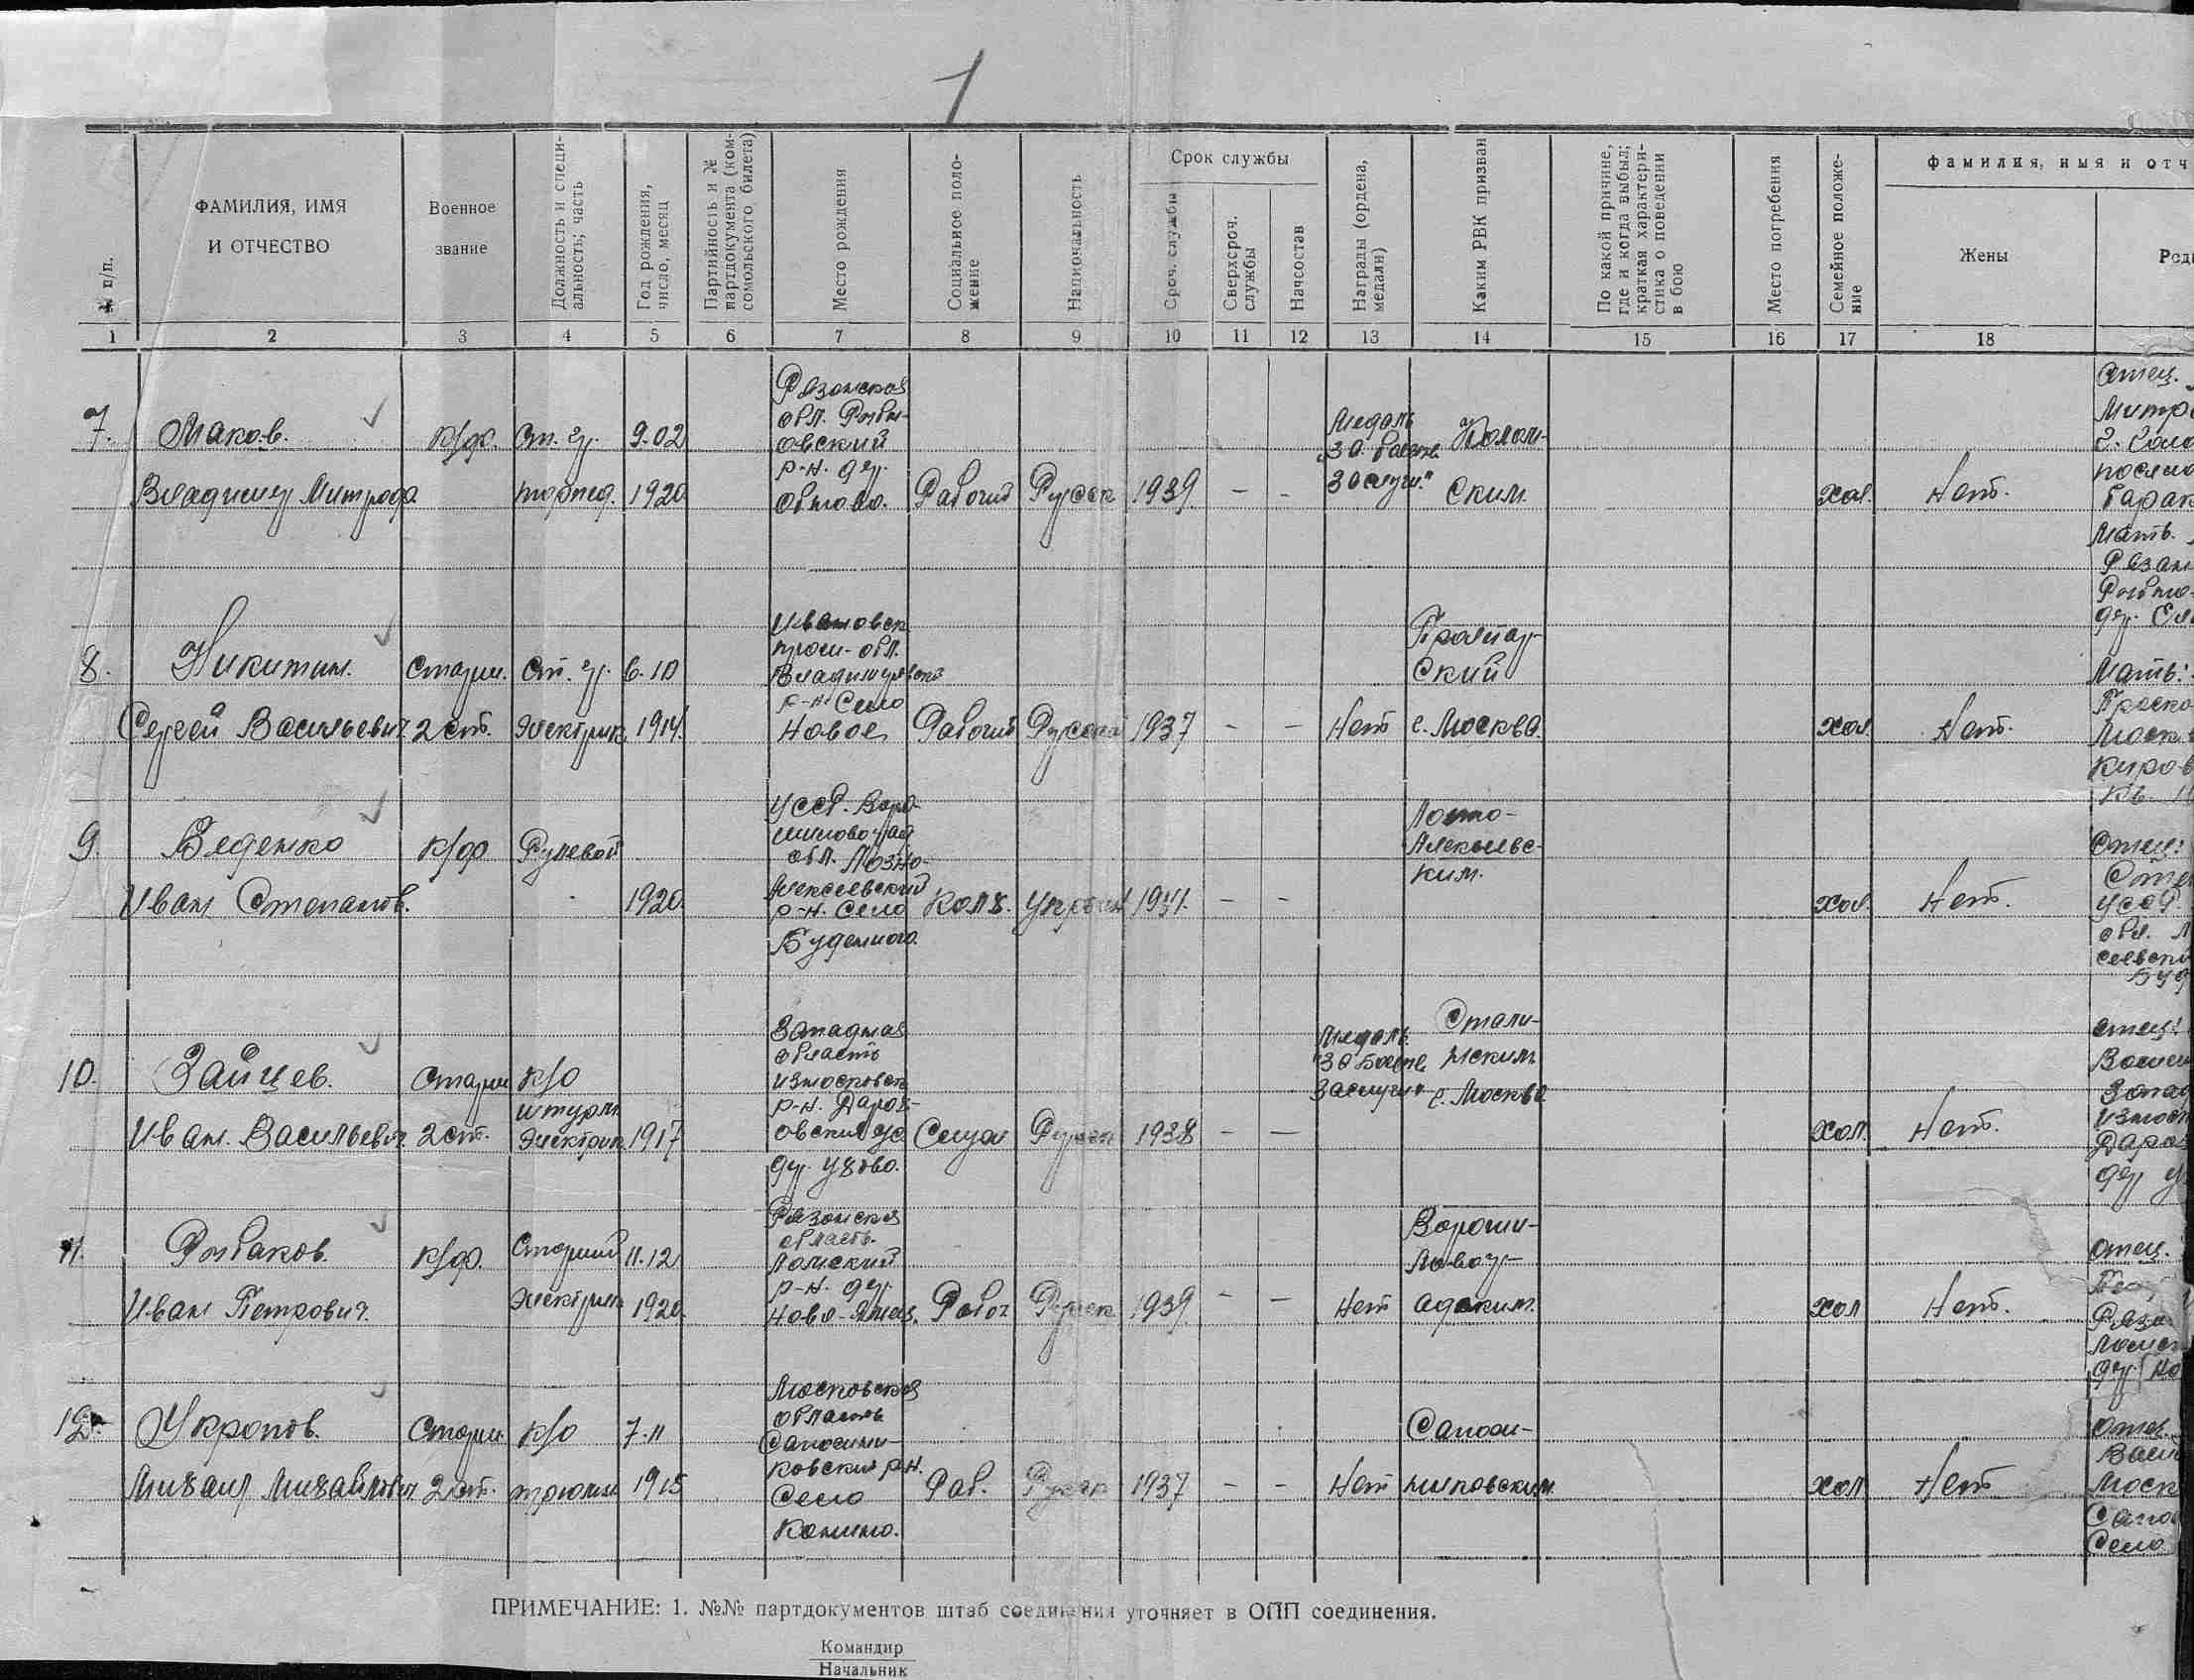 1
№ п/п.
ФАМИЛИЯ, ИМЯ
И ОТЧЕСТВО
Военное
звание
Должность и специ-
альность; часть
Год рождения,
число, месяц
Партийность и №
партдокумента (ком-
сомольского билета)
Место рождения
Социальное поло-
жение
Национальность
Срок службы
Сроч. службы
Сверхсроч.
службы
Начсостав
Награды (ордена,
медали)
Каким РВК призван
По какой причине,
где и когда выбыл;
краткая характери-
стика о поведении
в бою
Место погребения
Семейное положе-
ние
фамилия, имя и отч
Жены
Род
1 2 3 4 5 6 7 8 9 10 11 12 13 14 15 16 17 18
7.
Маков.
Владимир Митроф.
к/ф.
Ст. гр.
торпед.
9.02
1920
Рязанская
обл. Рыбн-
овский
р-н. дер.
Рабочий
Русск
1939.
-
-
Медаль
"За боевые
заслуги"
Колом-
ским.
хол.
Нет.
Отец.
Митро
Мать.
Рязан
дер. Ел
8.
Никитин.
Сергей Васильевич
Старш.
2 ст.
Ст. гр.
Электрик
6.10
1914
Ивановск
пром. обл.
Владимирского
р-н. Село
Новое
Рабочий
Русский
1937
-
-
Нет
Пролетар-
ский
г. Москва.
хол.
Нет.
Мать:
Праско
Москв
Киров
кв.
9.
Веденко
Иван Степанов.
к/ф
Рулевой
1920
УССР. Воро-
шиловоград
обл. Лозно-
Алексеевский
р-н. Село
Буденного.
Колх.
1941.
-
-
Лозно-
Алексеевс-
ким.
хол.
Нет.
Отец:
Степ
УССР.
обл. Л
сеевски
Буд
10.
Зайцев.
Иван. Васильевич
Старш
2 ст.
К/О
штурм.
Электрик
1917
Западная
область
Износковск
р-н.
дер.
Служ
Русск
1938
-
-
Медаль
"За Боевые
Заслуги"
Стали-
нским
г. Москва
хол.
Нет.
отец:
Васил
Запад
Износк
дер
11.
Рыбаков.
Иван Петрович.
к/ф.
Старший
Электрик
11.12
1920
Рязанская
область.
р-н. дер.
Рабоч
Русск
1939.
-
-
Нет
Вороши-
ловогр-
адским.
хол
Нет.
отец.
Ряза
дер. Но
12.
Укропов.
Михаил Михайлович
Старш.
2 ст.
К/О
трюмн
7.11
1915
Московская
область
Сапожни-
ковский р-н.
Село
Канино.
Раб.
Русск
1937
-
-
Нет
Сапож-
никовским
хол
Нет
отец.
Моск
Сапо
Село
ПРИМЕЧАНИЕ: 1. №№ партдокументов штаб соединения уточняет в ОПП соединения.
Командир
Начальник